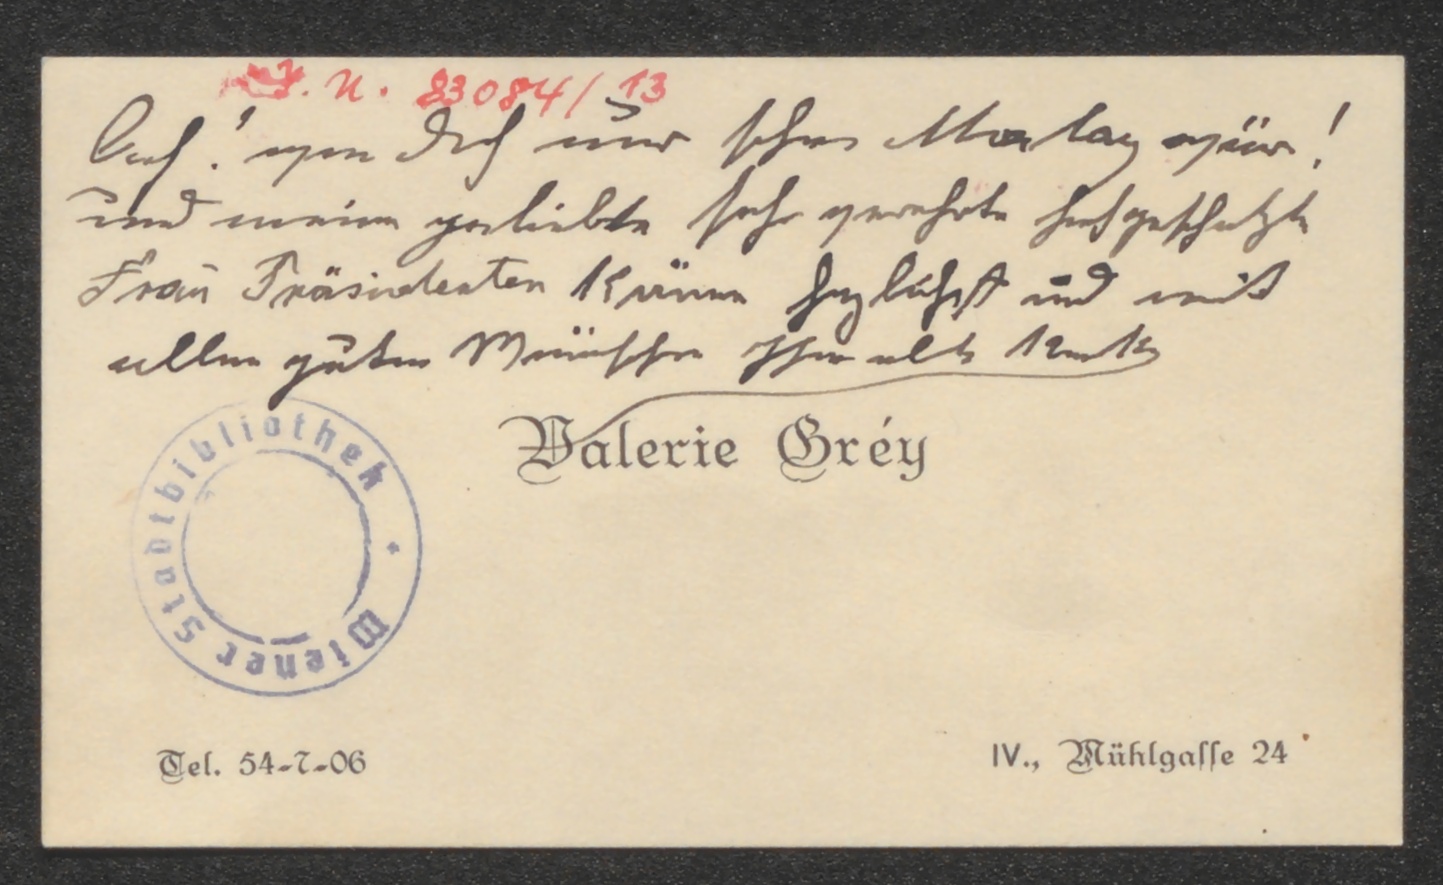 I. N. 83084/13
Ach! wenn doch nur schon Montag wär!
und meine geliebte sehr verehrte hochgeschätzte
Frau Präsidenten küssen herzlichst und mit
allen guten Wünschen Ihre alte
Valerie Gréy
Wiener Stadtbibliothek *
Tel. 54-7-06
IV., Mühlgasse 24